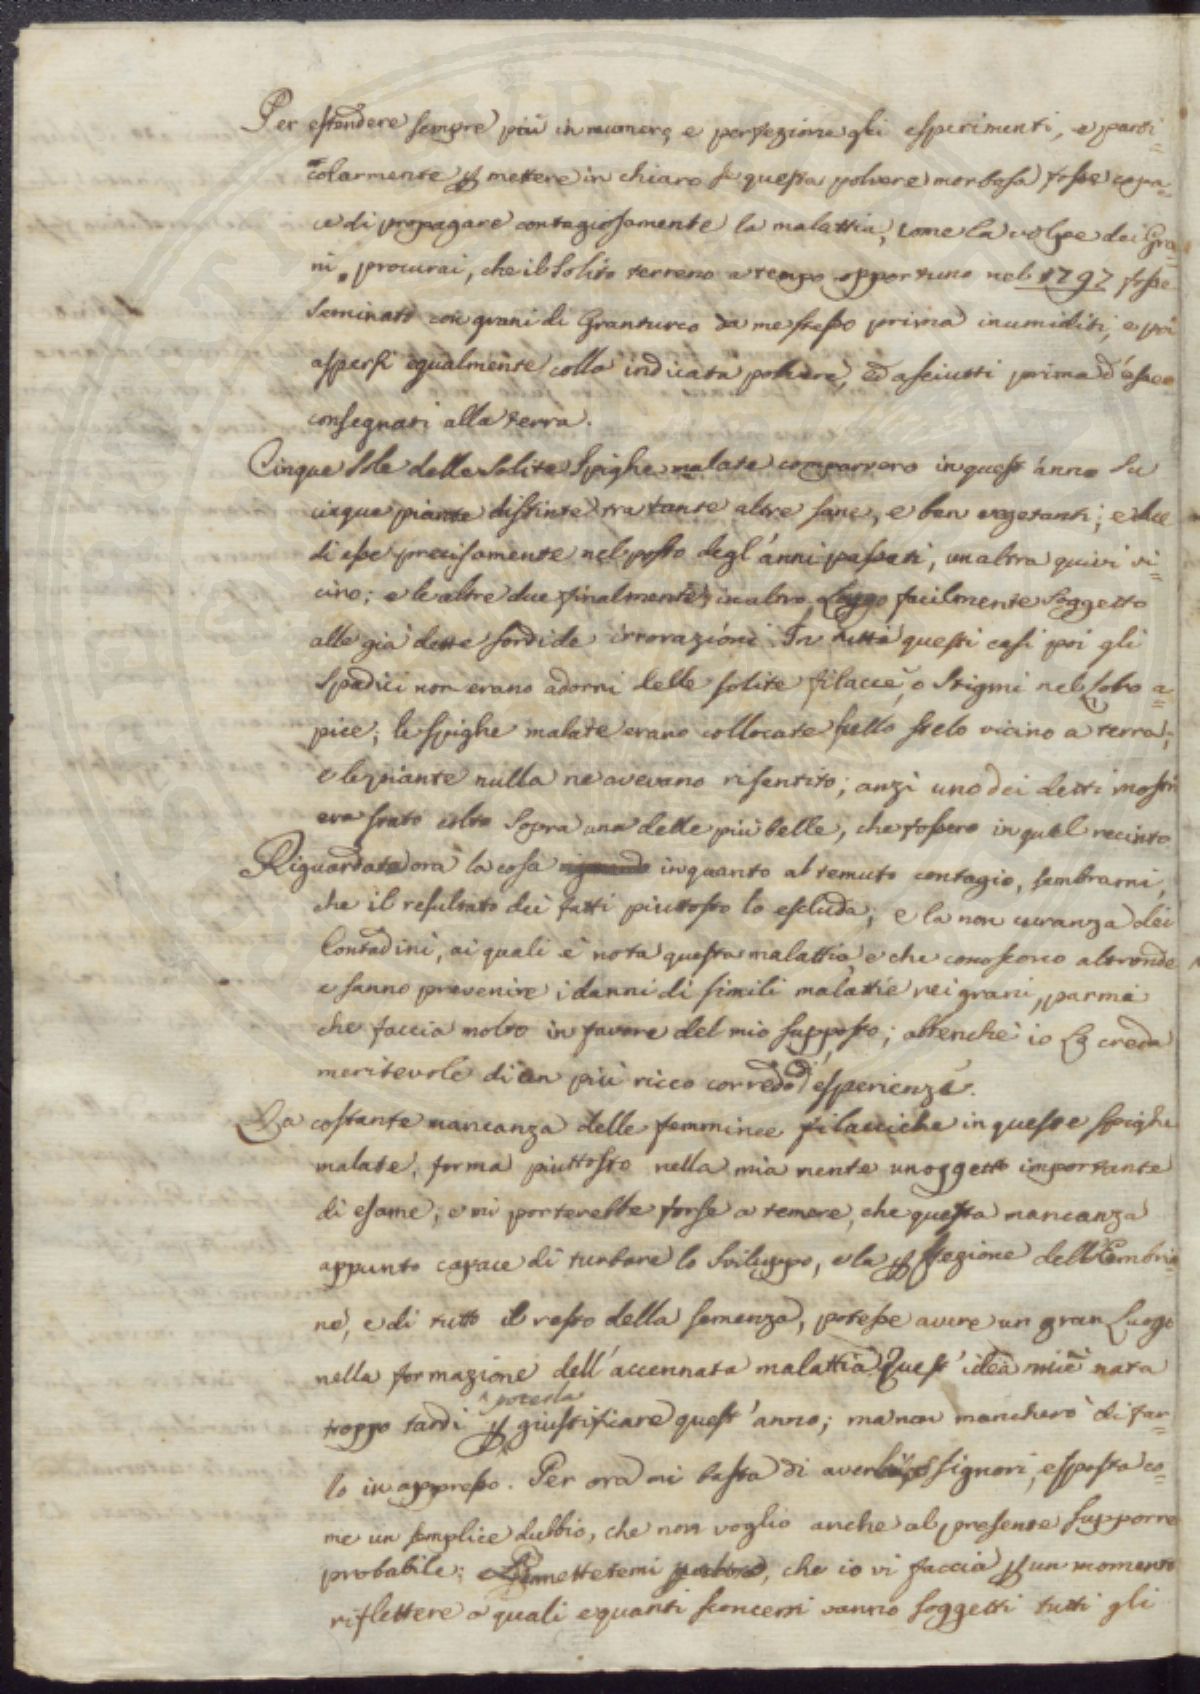 Per estendere sempre più in numero, e perfezione gli esperimenti, e parti=
colarmente p mettere in chiaro se questa polvere morbosa fosse capa=
ce di propagare contagiosamente la malattia, come la volpe dei Gra=
ni, procurai, che il solito terreno a tempo opportuno nel 1797 fosse
seminato con grani di Granturco da me stesso prima inumiditi, e poi
aspersi egualmente colla indicata polvere, ed asciutti prima d'esser
consegnati alla terra.
Cinque sole delle solite Spighe malate comparvero in quest'anno su
cinque piante distinte tra tante altre sane, e ben vegetanti; e due
di esse precisamente nel posto degl'anni passati, un altra quivi vi=
cino; e le altre due finalmente in altro Luogo facilmente soggetto
alle già dette sordide irrorazioni. In tutti questi casi poi gli
Spadici non erano adorni delle solite filacce, o Stigmi nel Loro a=
pice; le spighe malate erano collocate sullo stelo vicino a terra;
e le piante nulla ne avevano risentito; anzi uno dei detti mostri
era stato colto sopra una delle più belle, che fossero in quel recinto
Riguardata ora la cosa in quanto al temuto contagio, sembrami,
che il resultato dei fatti piuttosto lo escluda; e la non curanza dei
Contadini, ai quali è nota questa malattia e che conoscono altronde
e sanno prevenire i danni di simili malattie nei grani, parmi
che faccia molto in favore del mio supposto; abbenchè io La creda
meritevole di un più ricco corredo d'esperienze.
La costante mancanza delle femminee filacciche in queste spighe
malate, forma piuttosto nella mia mente un oggetto importante
di esame; e mi porterebbe forse a temere, che questa mancanza
appunto capace di turbare lo sviluppo, e la pfezione dell'Embrio=
ne, e di tutto il resto della semenza, potesse avere un gran Luogo
nella formazione dell'accennata malattia. Quest'idea mi è nata
troppo tardi p poterla giustificare quest'anno; ma non mancherò di far=
lo in appresso. Per ora mi basta di averla, o signori, esposta co=
me un semplice dubbio, che non voglio anche al presente supporre
probabile; Permettetemi, che io vi faccia p un momento
riflettere a quali e quanti sconcerti vanno soggetti tutti gli